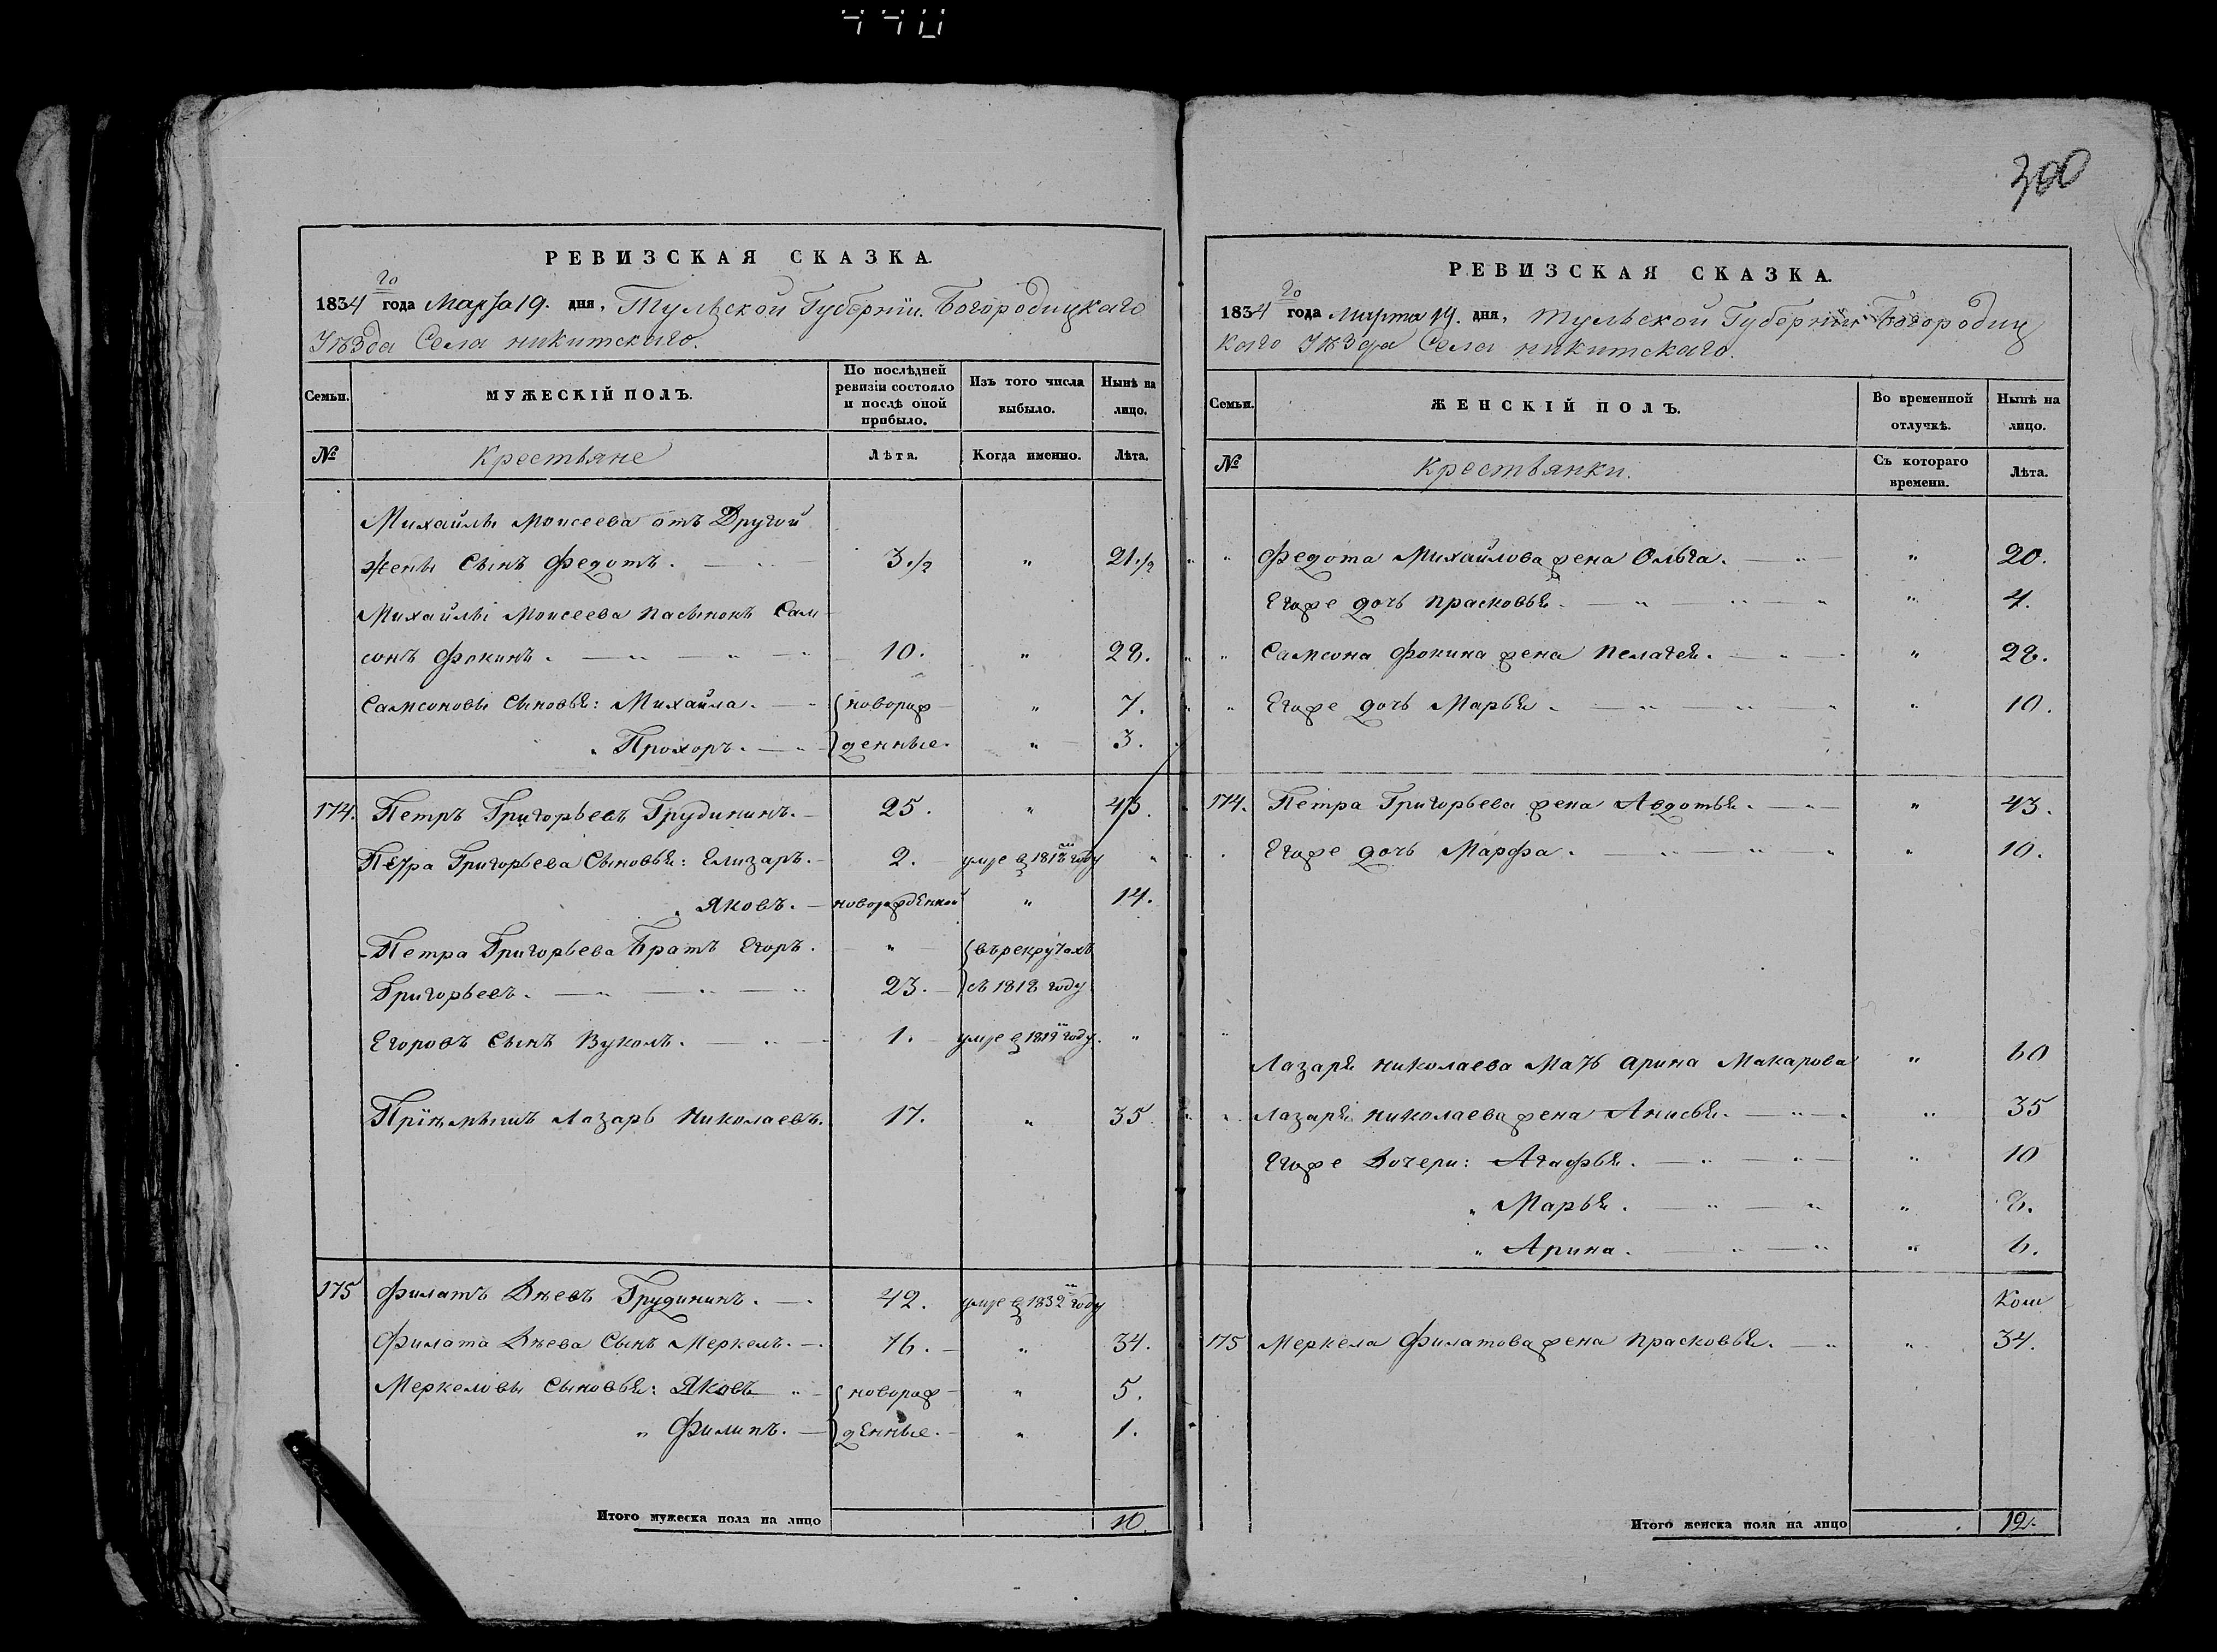 440
РЕВИЗСКАЯ СКАЗКА.
1834 го года Марта 19. дня, Тульской Губернïи Богородицкаго
Уѣзда Села никитскаго.
Семьи. МУЖЕСКІЙ ПОЛЪ. По послѣдней ревизіи состояло и послѣ оной прибыло. Изъ того числа выбыло. Нынѣ на лицо.
№ Крестьяне Лѣта. Когда именно. Лѣта.
Михайлы Моисеева отъ Другой
жены Сынъ Федотъ. 3.½ " 21.½
Михайлы Моисеева пасынокъ Сам
сонъ Фокинъ. 10. " 28.
Самсоновы Сыновья: Михайла. новорож " 7.
" Прохоръ. денные. " 3.
174. Петръ Григорьевъ Грудининъ. 25. " 43.
Петра Григорьева Сыновья: Елизаръ. 2. умре в 1818 году "
" Яковъ. новорожденной " 14.
Петра Григорьева Братъ Егоръ. " въ рекрутахъ
Григорьевъ. 23. съ 1818 году
Егоровъ Сынъ Вуколъ. 1. умре в 1819 году. "
Прïимышъ Лазарь Николаевъ. 17. " 35.
175 Филатъ Грудининъ. 42. умре в 1832 году
Филата Сынъ Меркелъ. 16. " 34.
Меркеловы Сыновья: Яковъ " новорож " 5.
" Филипъ. денные. " 1.
Итого мужеска пола на лицо 10.
300
РЕВИЗСКАЯ СКАЗКА.
1834 го года Марта 19. дня, Тульской Губернïи Богородиц
каго Уѣзда Села никитскаго.
Семьи. ЖЕНСКІЙ ПОЛЪ. Во временной отлучкѣ. Нынѣ на лицо.
№ Крестьянки. Съ котораго времени. Лѣта.
" " Федота Михайлова жена Ольга. " 20.
Егоже дочь прасковья. " 4.
" " Самсона Фокина жена пелагея. " 28.
" " Егоже дочь Марья. " 10.
174. Петра Григорьева жена Авдотья. " 43.
Егоже дочь Марфа. " 10.
Лазаря николаева Мать арина Макарова " 60
" " Лазаря николаева жена Анисья. " 35
Егоже Дочери: Агафья. " 10
" Марья. " 8.
" Арина. " 6.
175 Меркела Филатова жена прасковья. " 34.
Итого женска пола на лицо 12.